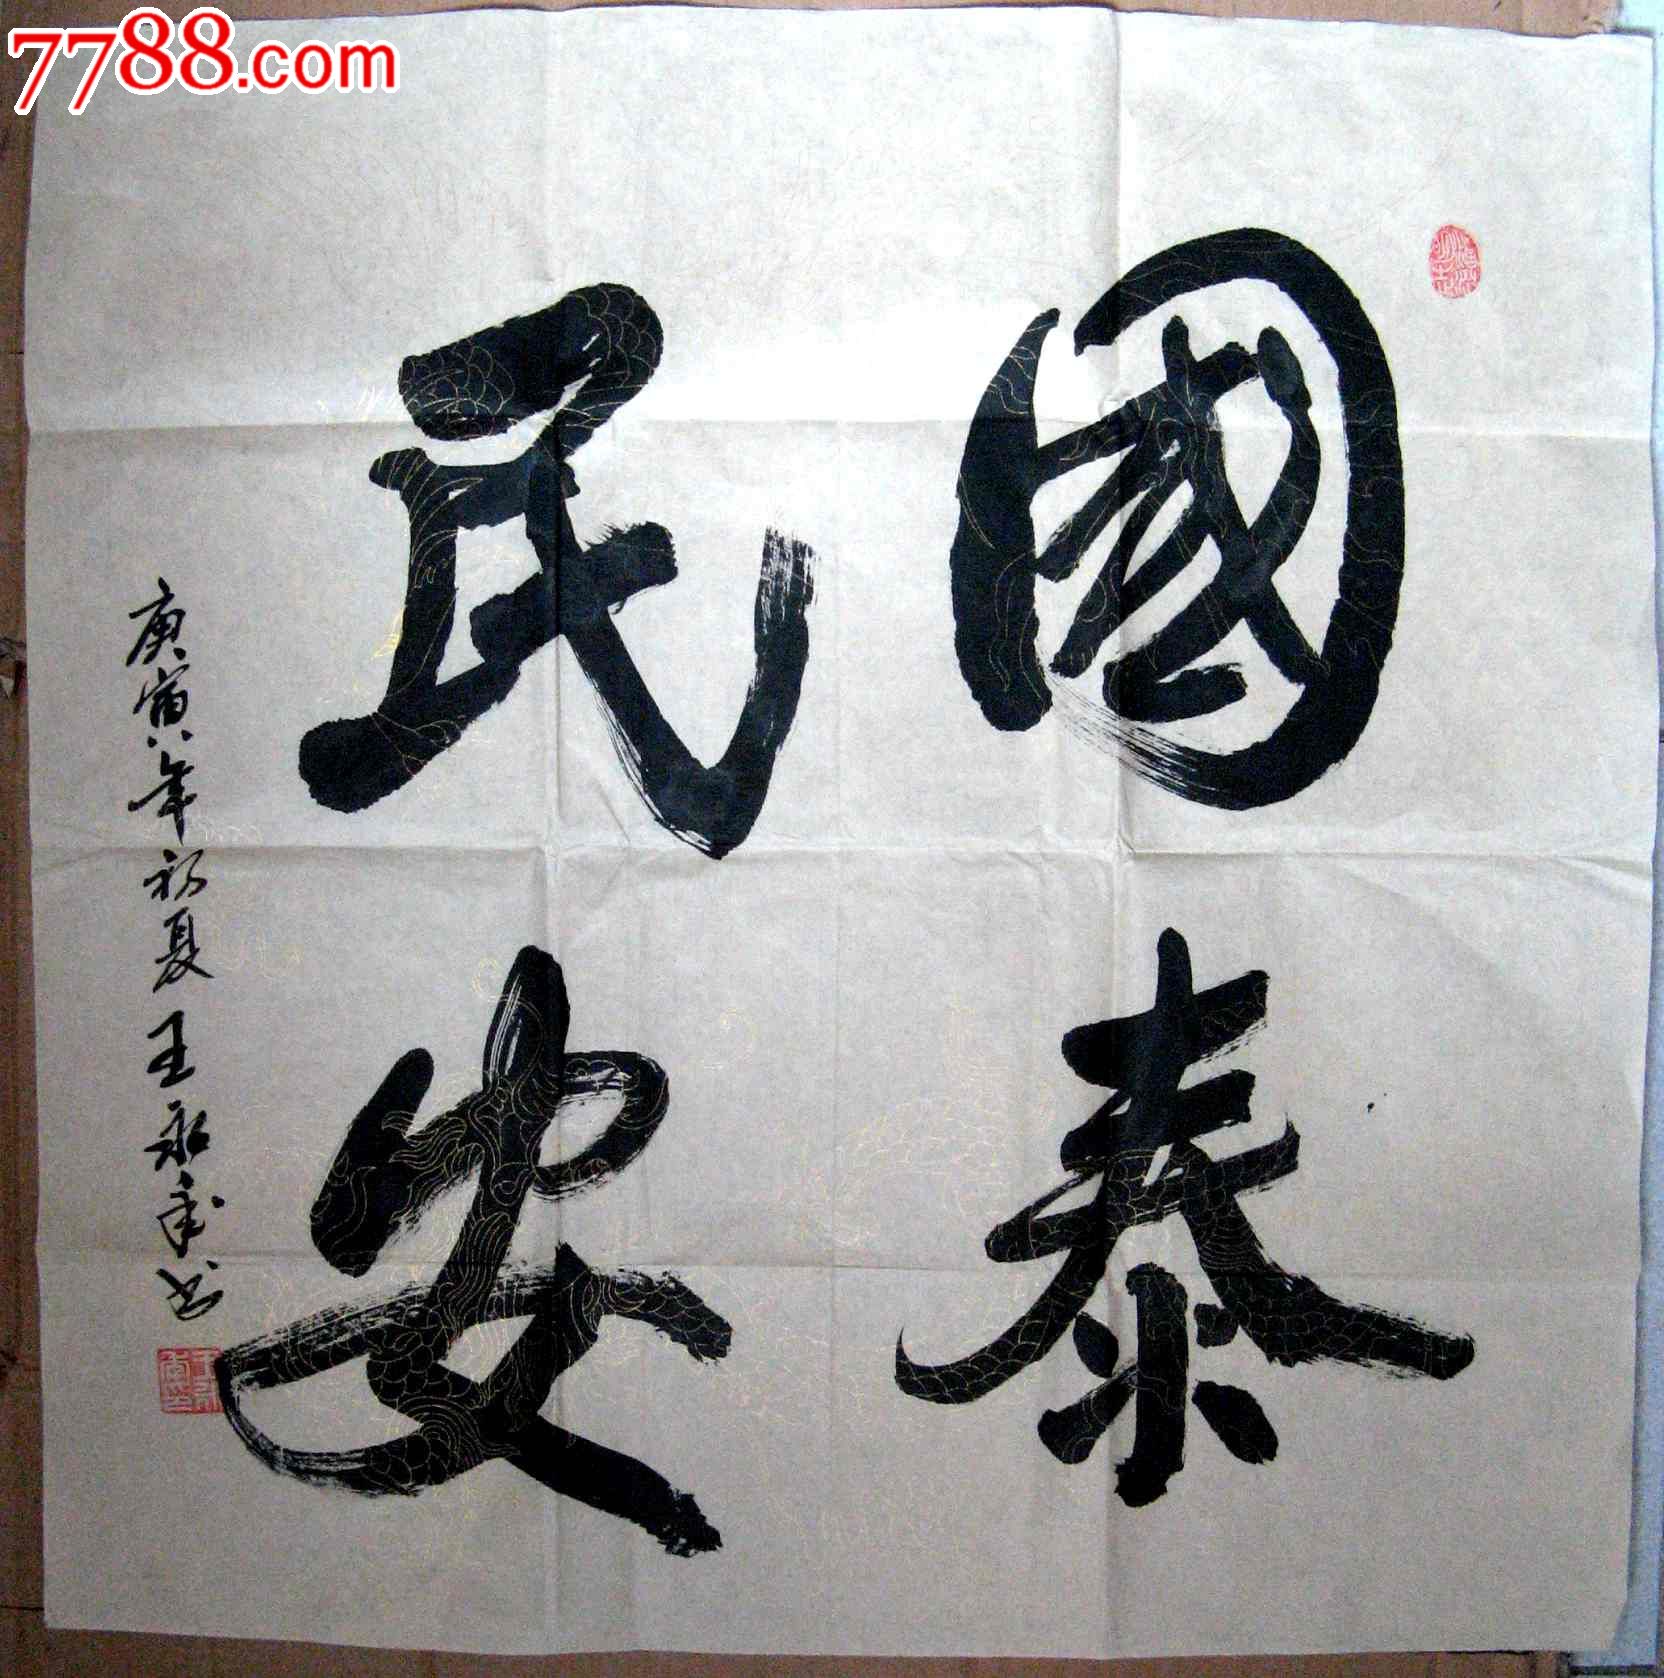 7788.com
國泰
民安
庚寅年初夏 王永年书